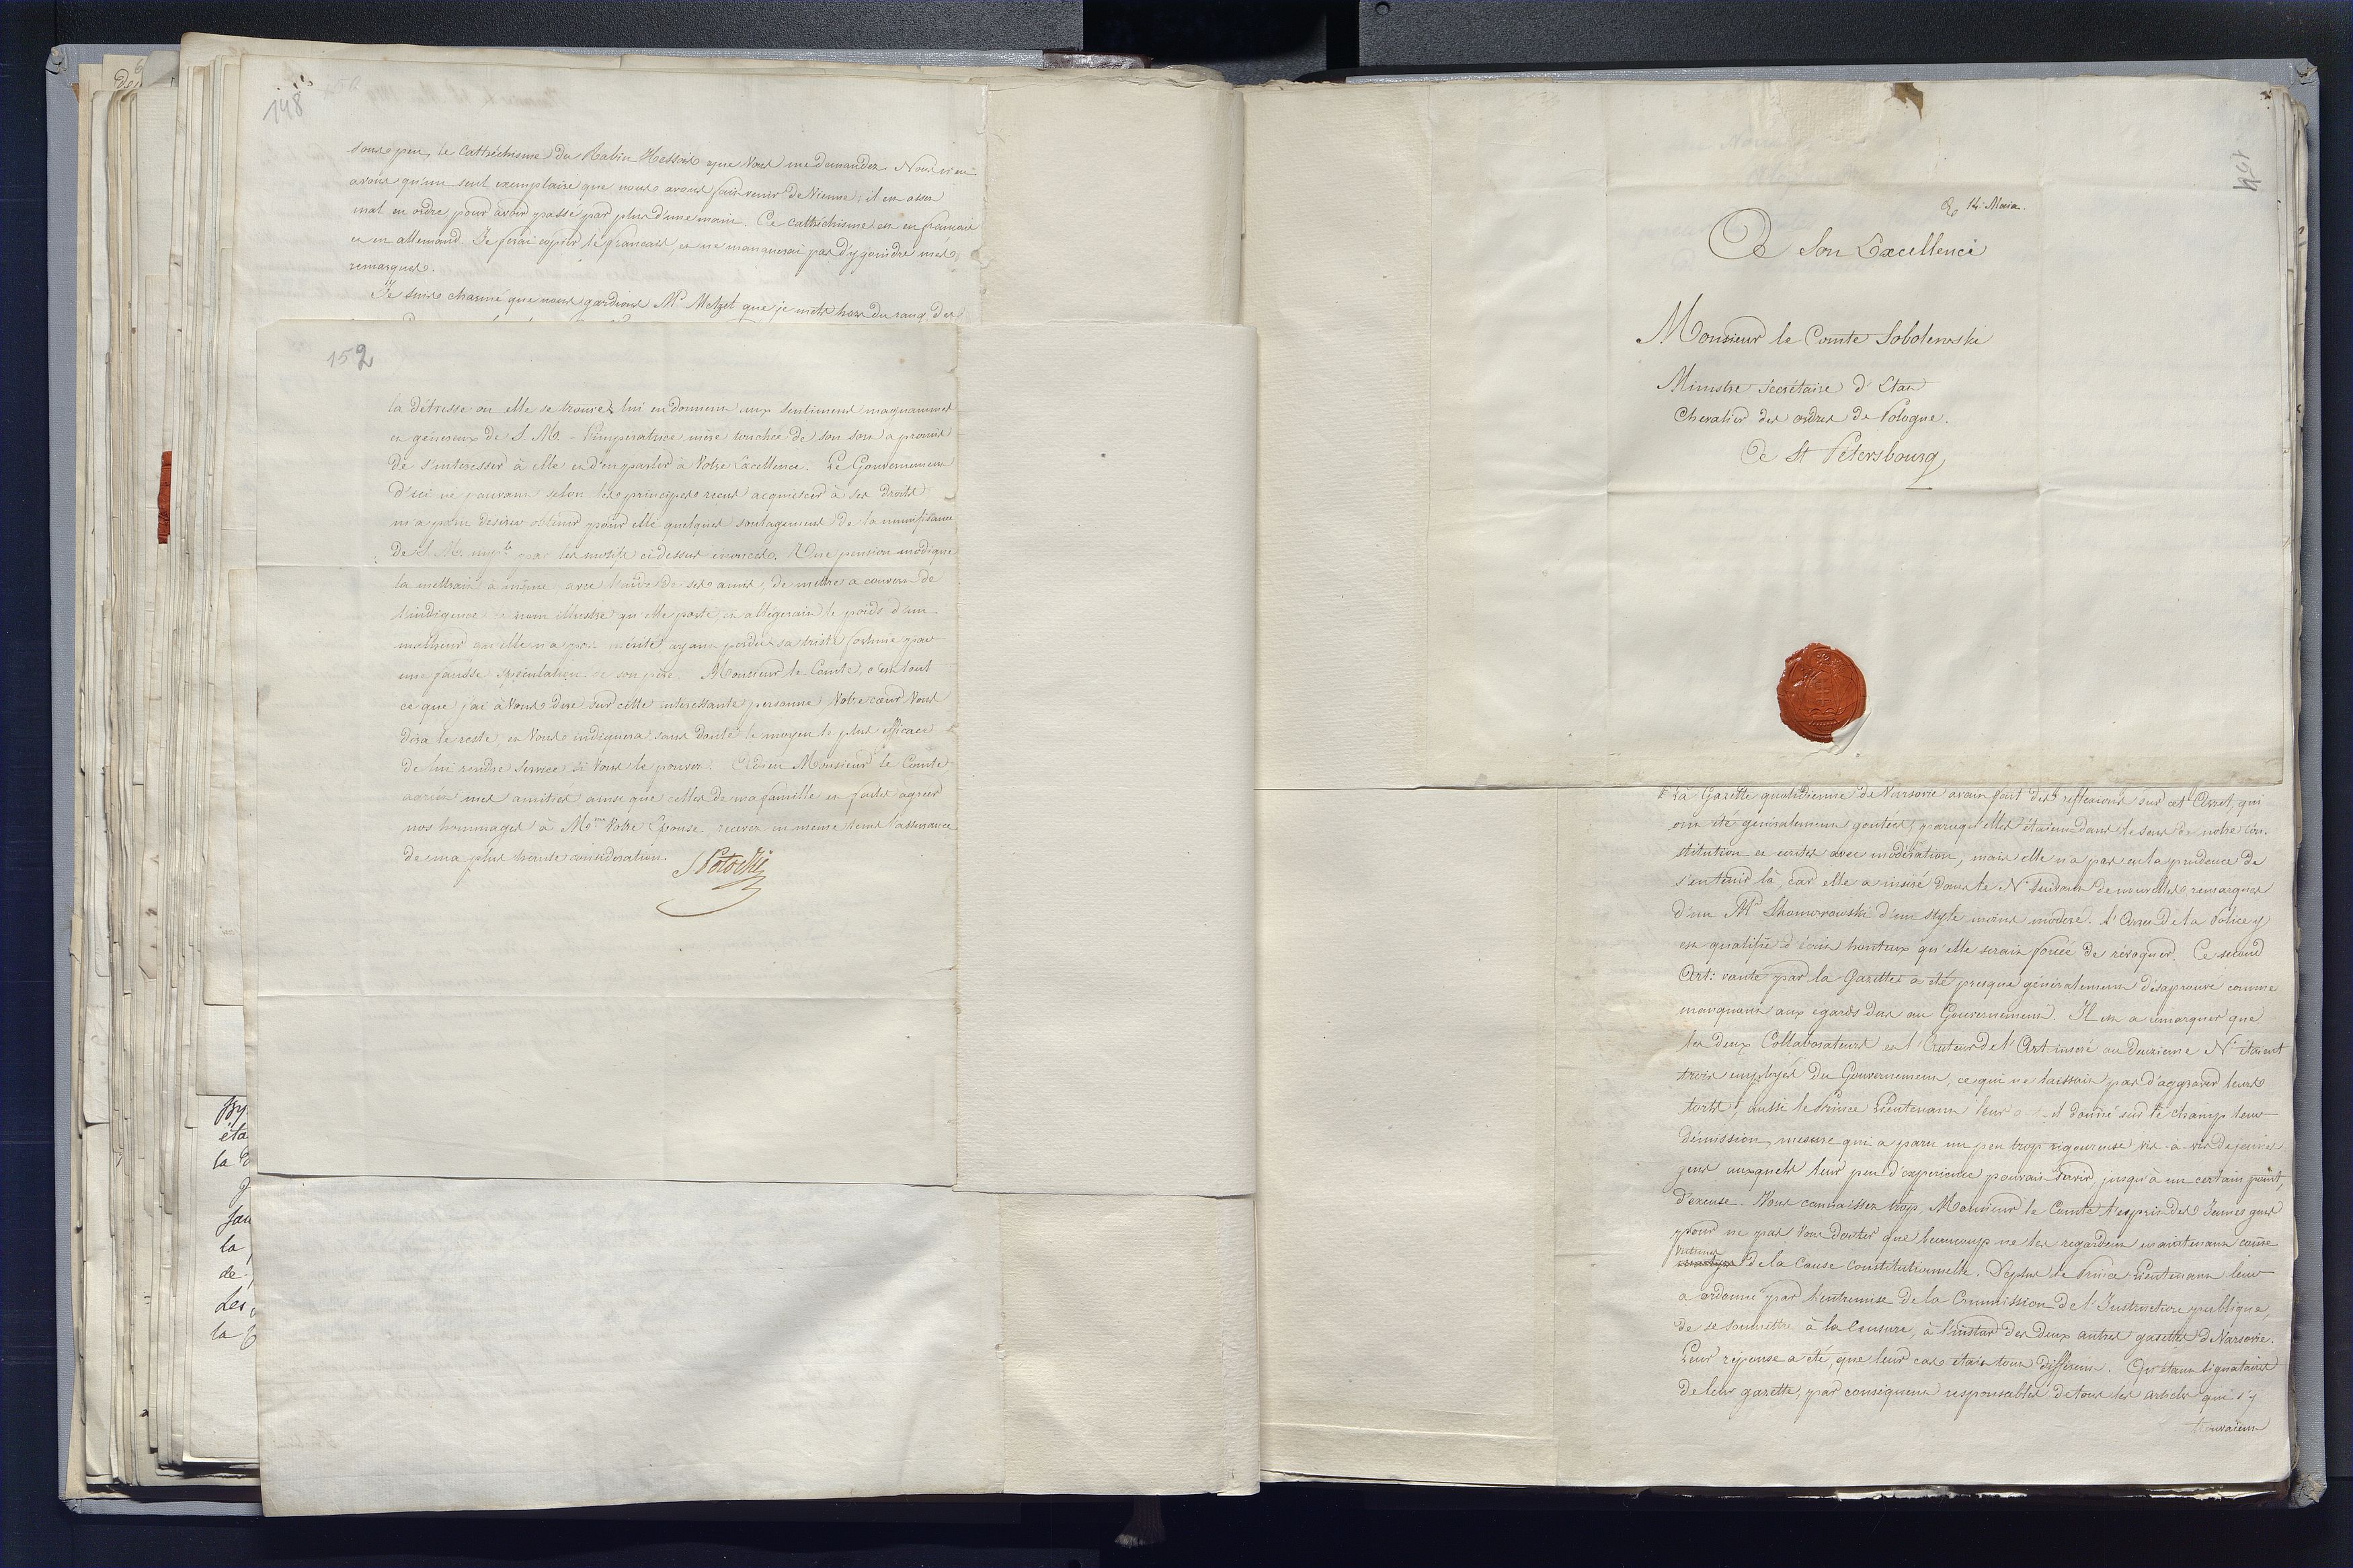 148
sous peu, le Cattéchisme du Rabin Hessois que Vous me demandez. Nous n'en
avons qu'un seul exemplaire que nous avons fait venir de Vienne; il est assez
mal en ordre pour avoir passé par plus d'une main. Ce cattéchisme est en français
et en allemand. Je ferai copier le français, et ne manquerai pas d'y joindre mes
remarques.
Je suis charmé que nous gardions Mr Metzel que je mets hors du rang des
152
la détresse ou elle se trouve, lui en donnent aux sentimens magnanimes
et généreux de S. M. L'impératrice mère touchée de son sort a promis
de s'interesser à elle et d'en parler à Votre Excellence. Le Gouvernement
d'ici ne pouvant selon les principes recus acquiescer à ses droits
m'a paru desirer obtenir pour elle quelques soulagemens de la munificence
de S. M. imp.le par les motifs cidessus énoncés. Une pension modique
la mettrait à même avec l'aide de ses amis, de mettre a couvert de
l'indigence le nom illustre qu'elle porte, et allégerait le poids d'un
malheur qu'elle n'a pas mérité ayant perdu sa triste fortune par
une fausse spéculation de son père. Monsieur le Comte, c'est tout
ce que j'ai à Vous dire sur cette intéressante personne, Votre cœur Vous
dira le reste, et Vous indiquera sans doute le moyen le plus efficace
de lui rendre service si Vous le pouvez. Adieu Monsieur le Comte
agréez mes amitiés ainsi que celles de ma famille et faites agréer
nos hommages à Me Votre Epouse. recevez en meme tems l'assurance
de ma plus haute consideration.
S Potocki
154
14 Maia.
A Son Excellence
Monsieur le Comte Sobolewski
Ministre Secrétaire d'Etat
Chevalier des ordres de Pologne.
de St Petersbourg
La Gazette quotidienne de Varsovie avait fait des réflexions sur cet Arret, qui
ont été généralement goutées, parcequ'elles étaient dans le sens de notre Con-
stitution et écrites avec modération, mais elle n'a pas eu la prudence de
s'en tenir là, car elle a inséré dans le No suivant de nouvelles remarques
d'un Mr Skomorowski d'un style moins modéré. L'Arret de la Police y
est qualifié d'écrit honteux qu'elle serait forcée de révoquer. Ce second
Art: vanté par la Gazette a été presque généralement désaprouvé comme
manquant aux égards dus au Gouvernement. Il est a remarquer que
les deux Collaborateurs et l'Auteur de l'Art inseré au deuxieme No étaient
trois employés du Gouvernement, ce qui ne laissait pas d'aggraver leurs
torts; aussi le Prince Lieutenant leur donné sur le champ leur
démission, mesure qui a paru un peu trop rigoureuse vis-à-vis de jeunes
gens auxquels leur peu d'experience pouvait servir, jusqu'à un certain point,
d'excuse. Vous connaissez trop, Monsieur le Comte l'esprit des Jeunes gens
pour ne pas Vous douter que beaucoup ne les regardent maintenant come
victimes
martyrs de la Cause Constitutionnelle. Deplus le Prince Lieutenant leur
a ordonné par l'entremise de la Commission de l'Instruction publique,
de se soumettre à la Censure, à l'instar des deux autres gazettes de Varsovie.
Leur réponse a été, que leur cas était tout différent. Qu'étant signataires
de leur gazette, par conséquent responsables de tous les articles qui s'y
trouvaient